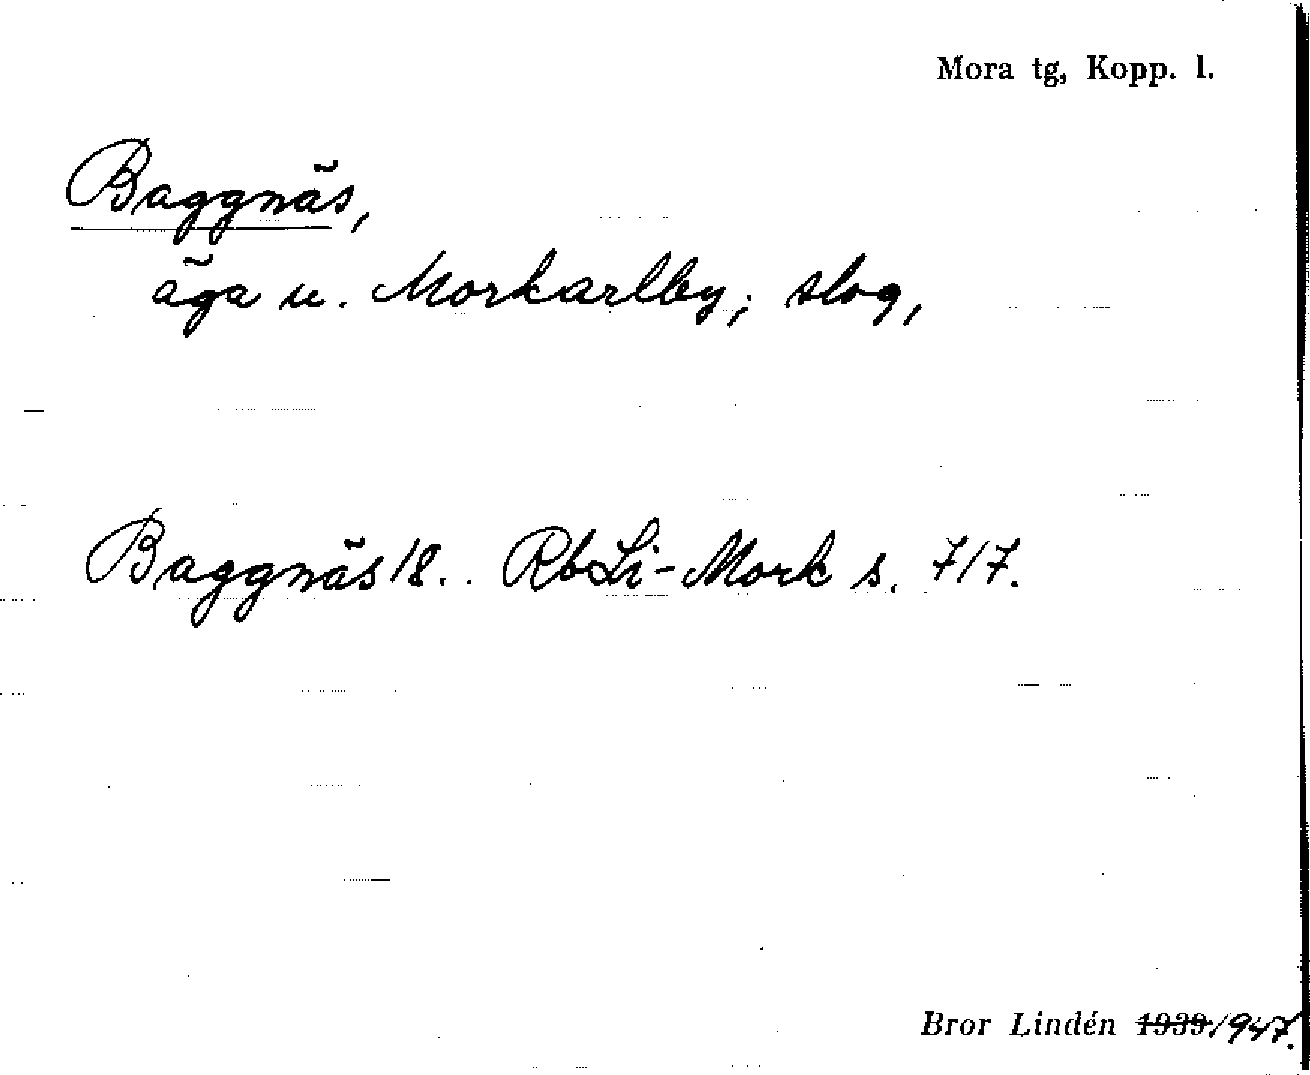 Mora tg, Kopp. l.
Baggnäs,
äga u. Morkarlby; slog,
Baggnäs 18.. RbLi-Mork s. 717.
Bror Lindén 1939 1947.